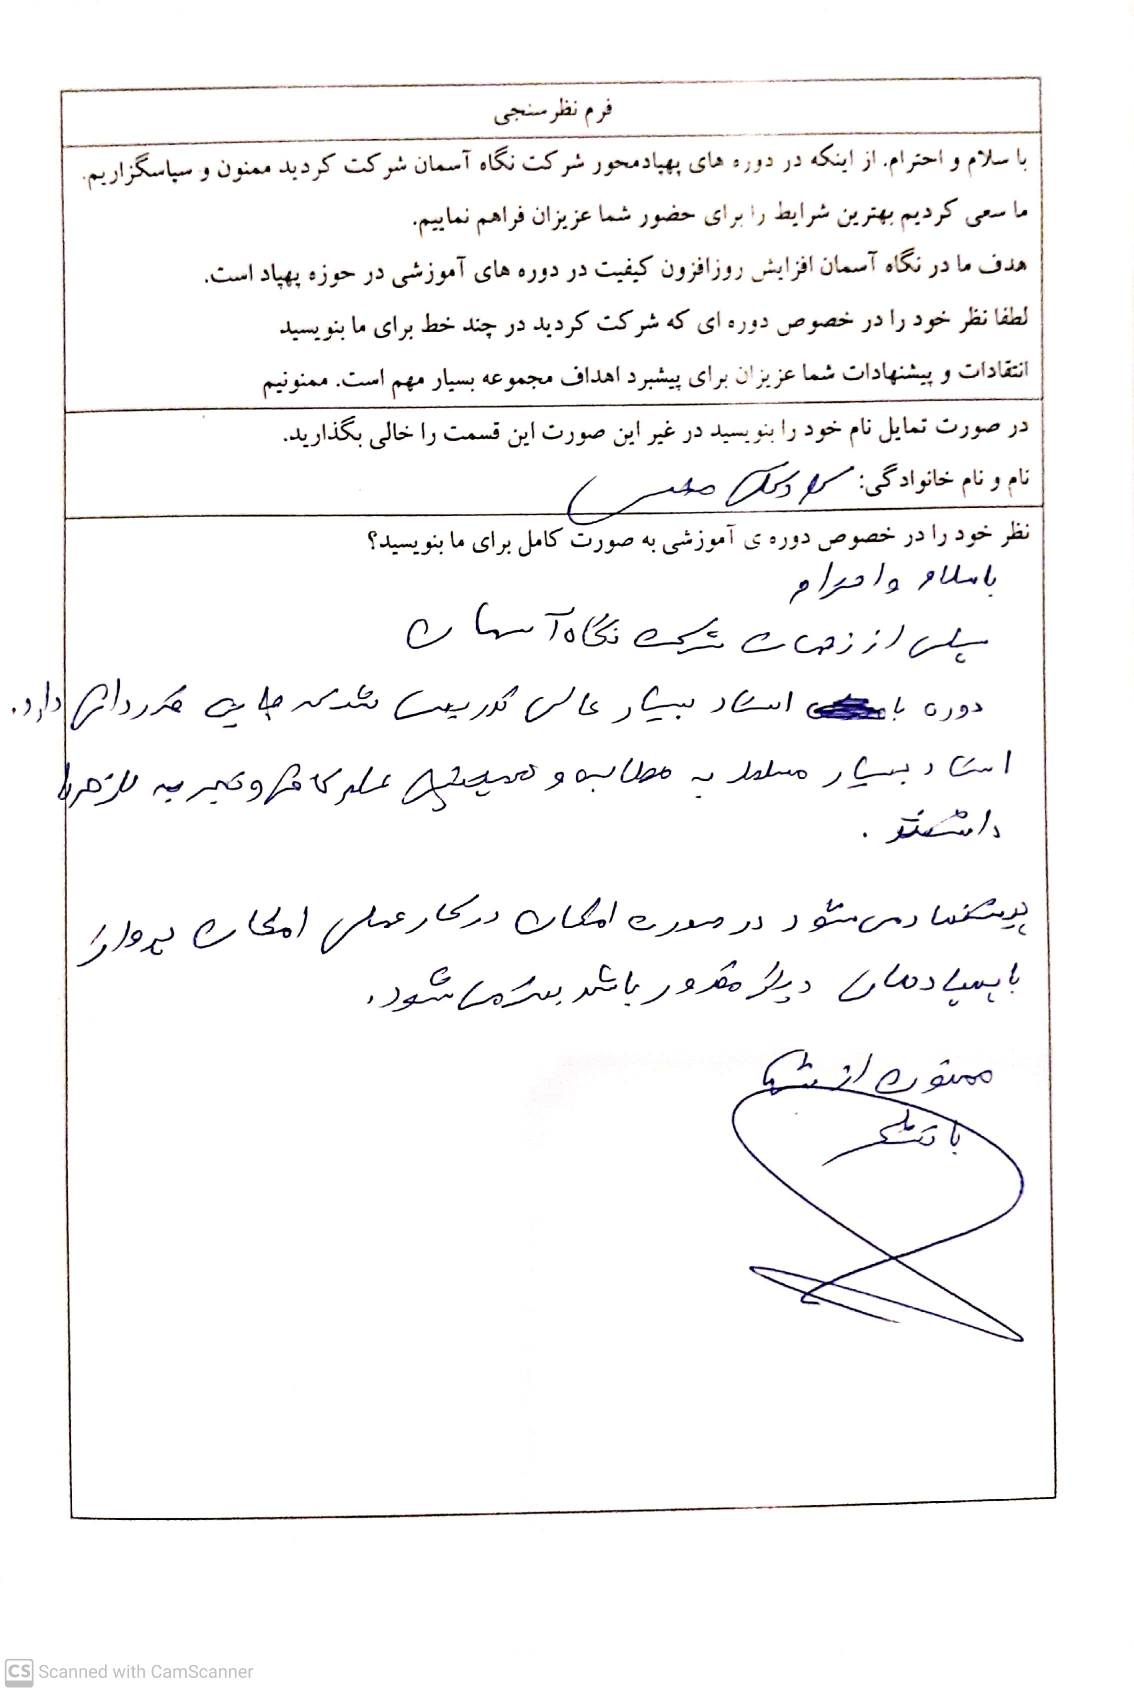 فرم نظرسنجی
با سلام و احترام. از اینکه در دوره های پهپادمحور شرکت نگاه آسمان شرکت کردید ممنون و سپاسگزاریم.
ما سعی کردیم بهترین شرایط را برای حضور شما عزیزان فراهم نماییم.
هدف ما در نگاه آسمان افزایش روزافزون کیفیت در دوره های آموزشی در حوزه پهپاد است.
لطفا نظر خود را در خصوص دوره ای که شرکت کردید در چند خط برای ما بنویسید
انتقادات و پیشنهادات شما عزیزان برای پیشبرد اهداف مجموعه بسیار مهم است. ممنونیم
در صورت تمایل نام خود را بنویسید در غیر این صورت این قسمت را خالی بگذارید.
نام و نام خانوادگی:
نظر خود را در خصوص دوره ی آموزشی به صورت کامل برای ما بنویسید؟
با سلام و احترام
پس از زحمات شرکت نگاه آسمان
دوره با استاد بسیار عالی تدریس شد که جای قدردانی دارد.
استاد بسیار مسلط به مطالب و علم کافی و تجربه
داشتند.
پیشنهاد می شود در صورت امکان در کار عملی امکان پرواز
با پهپادهای دیگر مقدور باشد بهتر می شود.
ممنون از شما
با تشکر
CS Scanned with CamScanner